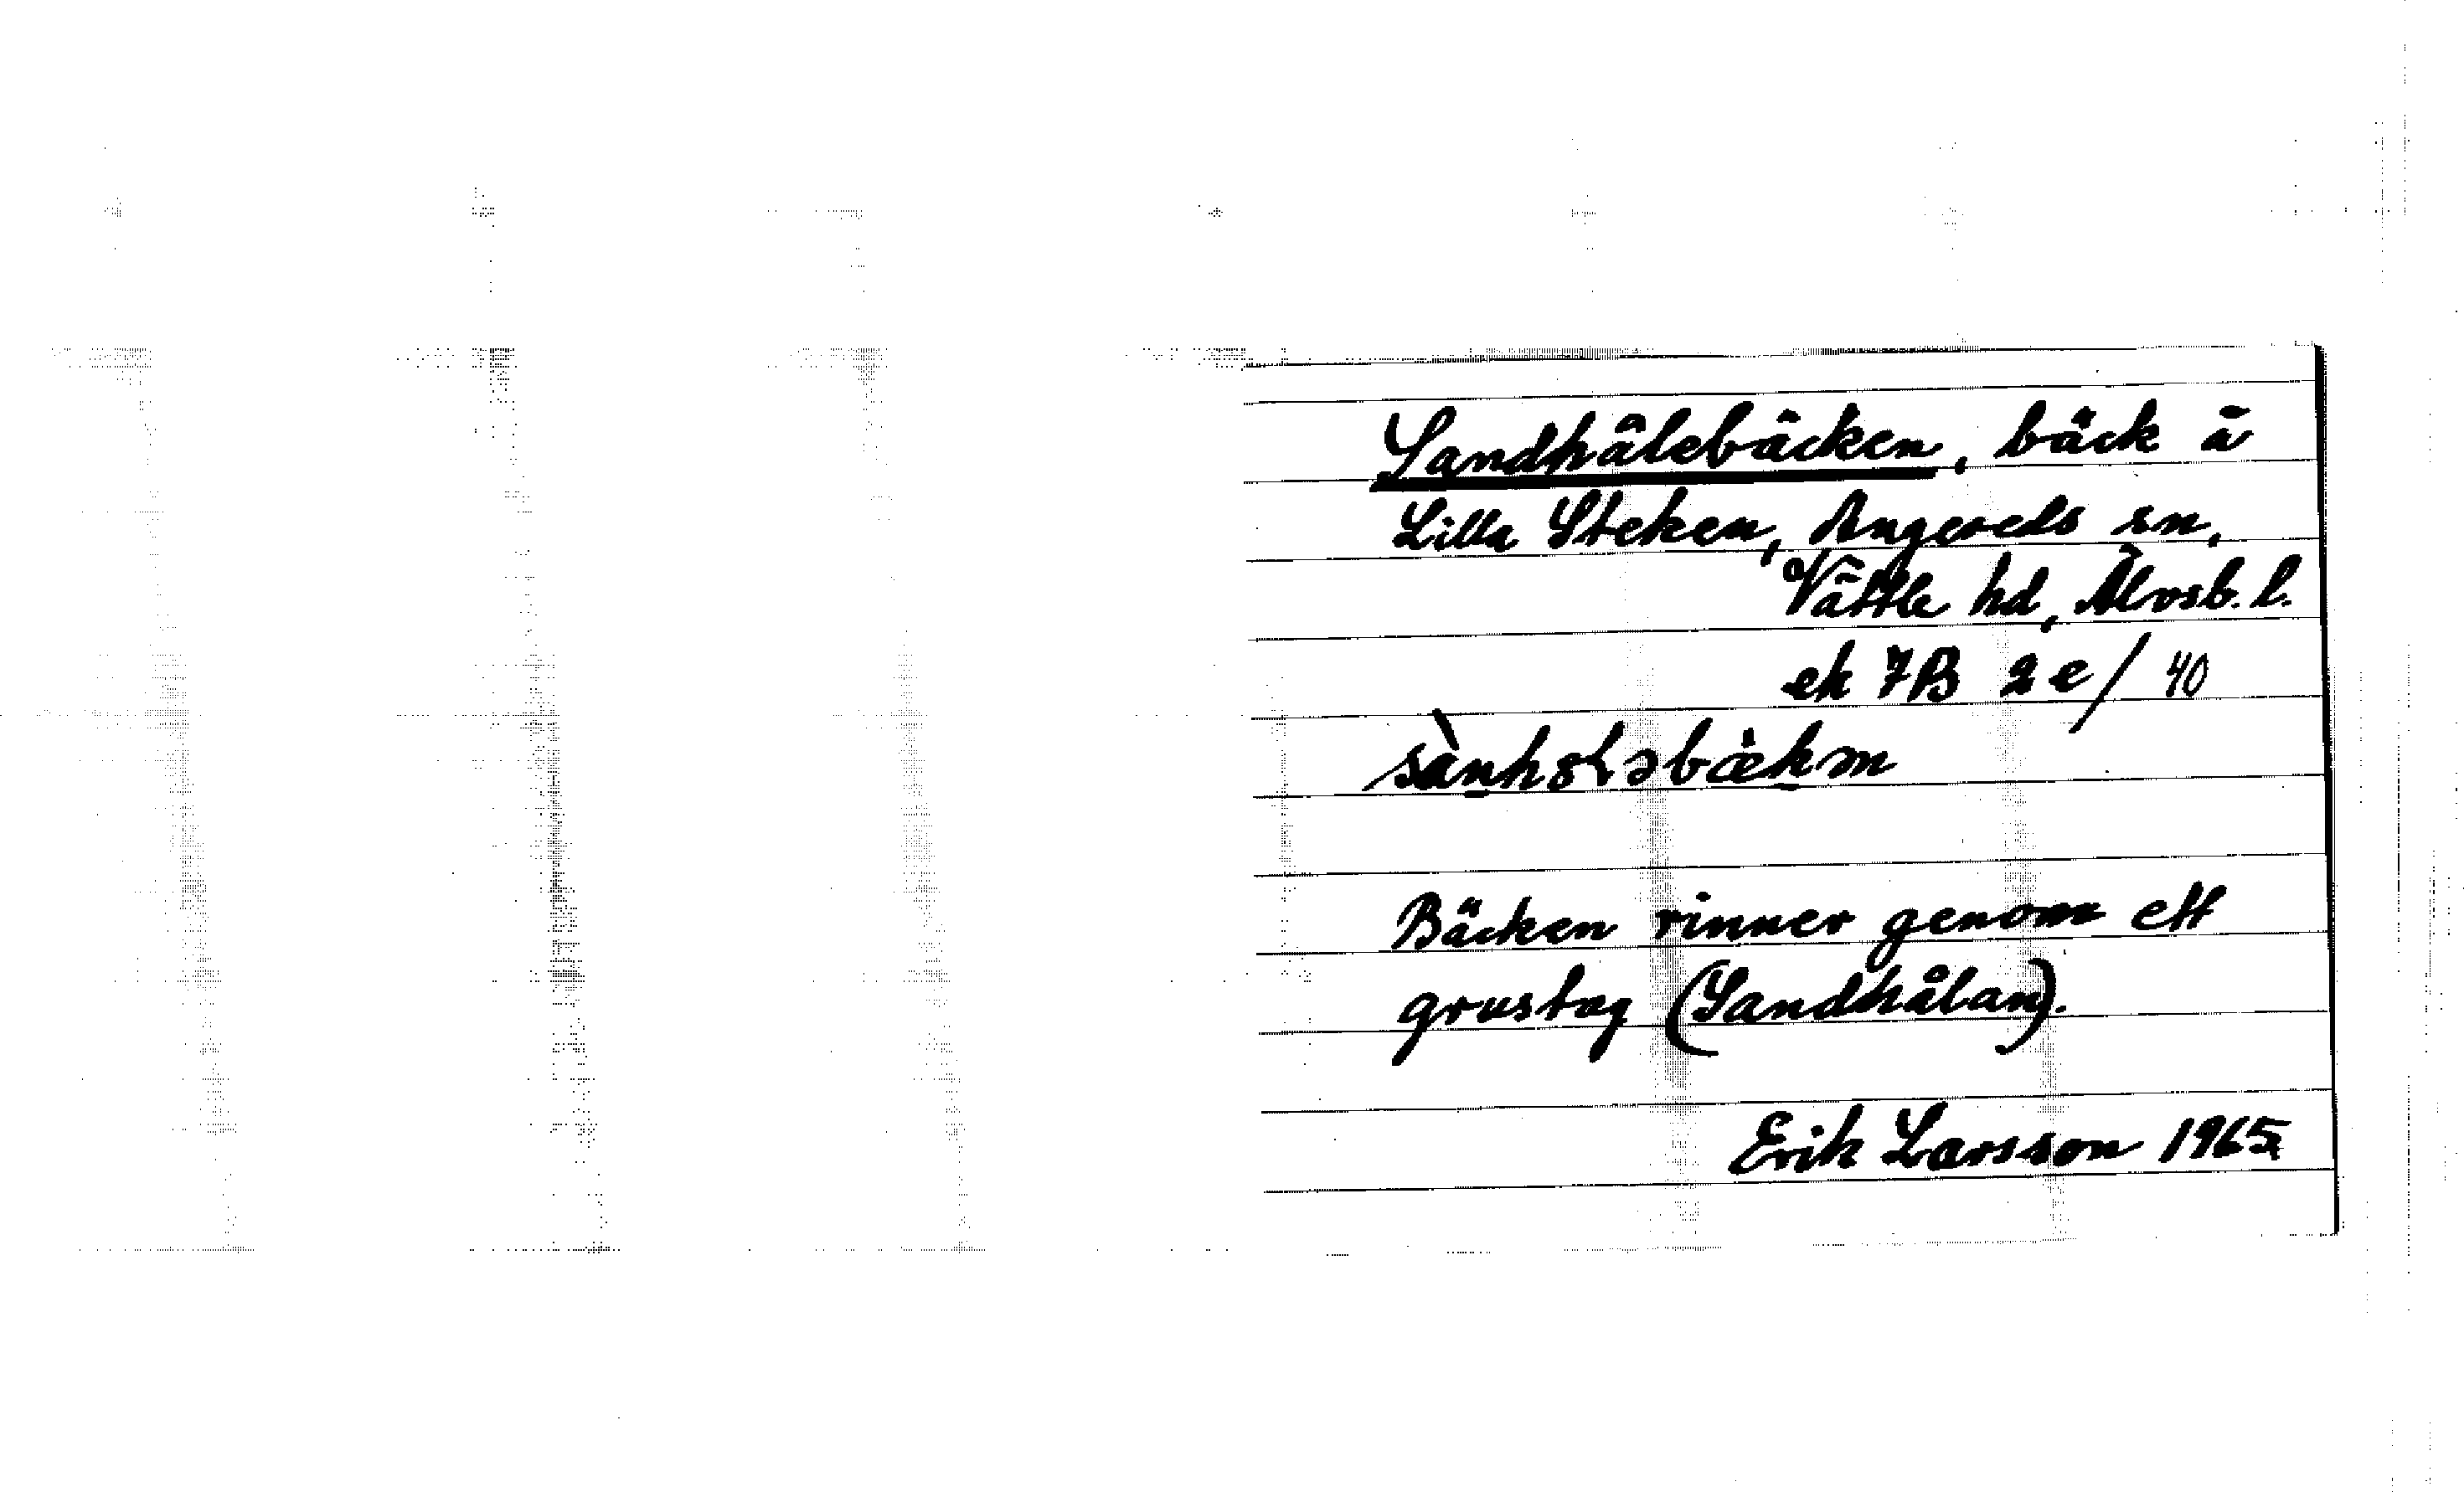 Sandhålebäcken, bäck å
Lilla Steken, Angereds sn,
Vättle hd, Älvsb. l.
ek 7B 2e/40
Bäcken rinner genom ett
grustag (Sandhålan).
Erik Larsson 1965